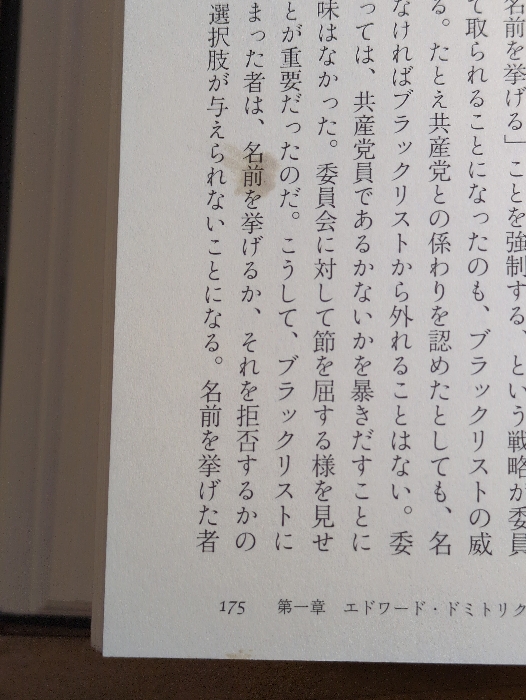 名前を挙げる」ことを強制する、という戦略が委員
て取られることになったのも、ブラックリストの威
る。たとえ共産党との係わりを認めたとしても、名
なければブラックリストから外れることはない。委
っては、共産党員であるかないかを暴きだすことに
味はなかった。委員会に対して節を屈する様を見せ
とが重要だったのだ。こうして、ブラックリストに
まった者は、名前を挙げるか、それを拒否するかの
選択肢が与えられないことになる。名前を挙げた者
175 第一章 エドワード・ドミトリク